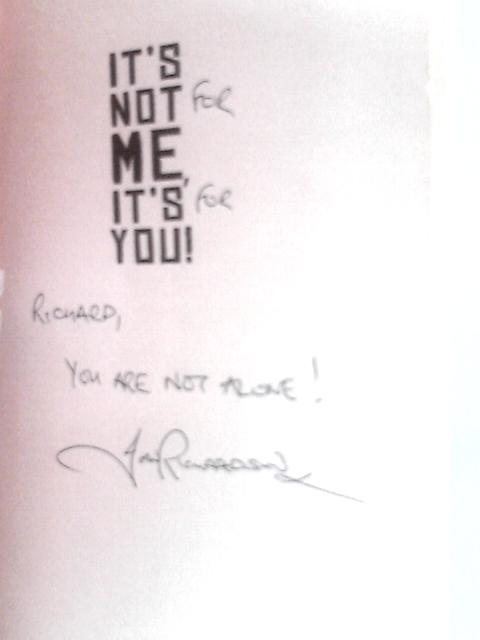 IT'S
NOT FOR
ME,
IT'S FOR
YOU!
RICHARD,
YOU ARE NOT ALONE!
Jon Richardson